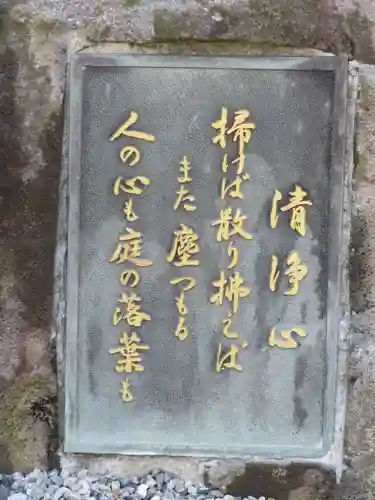 清浄心
掃けば散り拂えば
また塵つもる
人の心も庭の落葉も